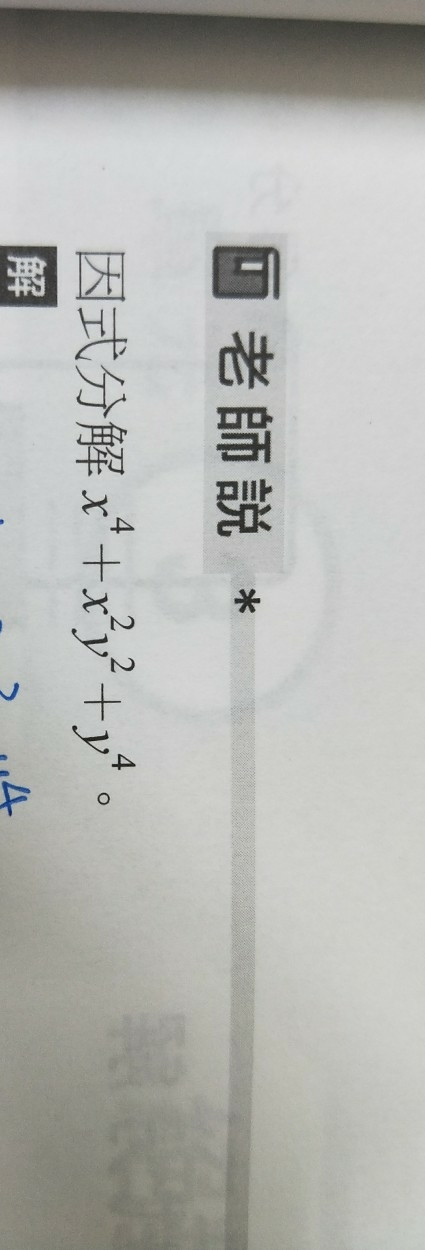 老師說 *
因式分解 x⁴+x²y²+y⁴。
解